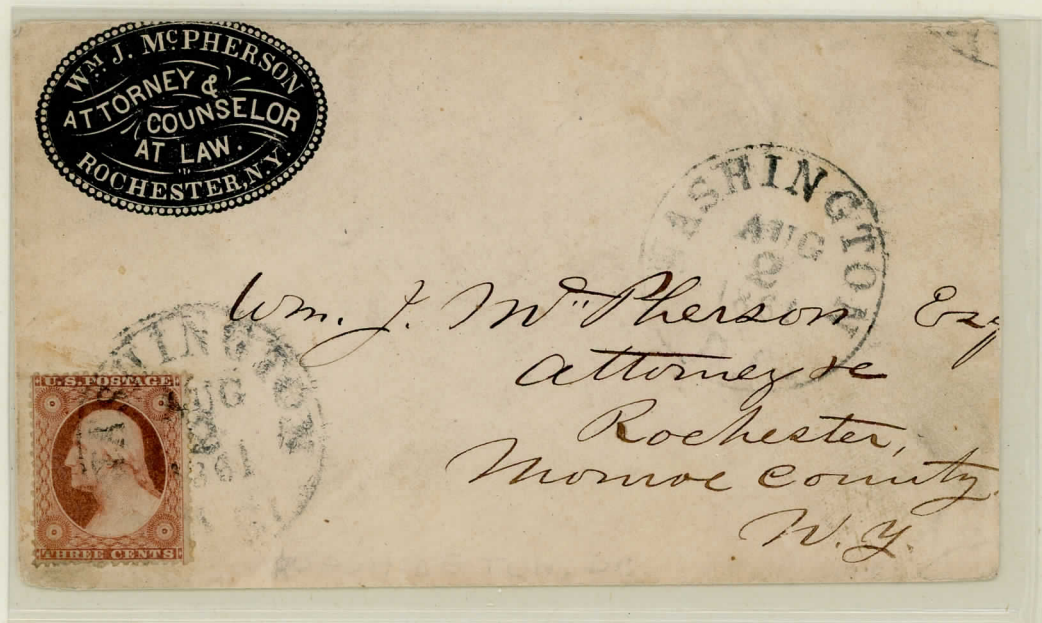 Wm J. McPHERSON
ATTORNEY &
COUNSELOR
AT LAW.
ROCHESTER, N.Y.
WASHINGTON
AUG
2
1861
Wm. J. Mc"Pherson Esq
Attorney &c
Rochester,
Monroe County
N.Y.
WASHINGTON
AUG
2
1861
U.S. POSTAGE
THREE CENTS